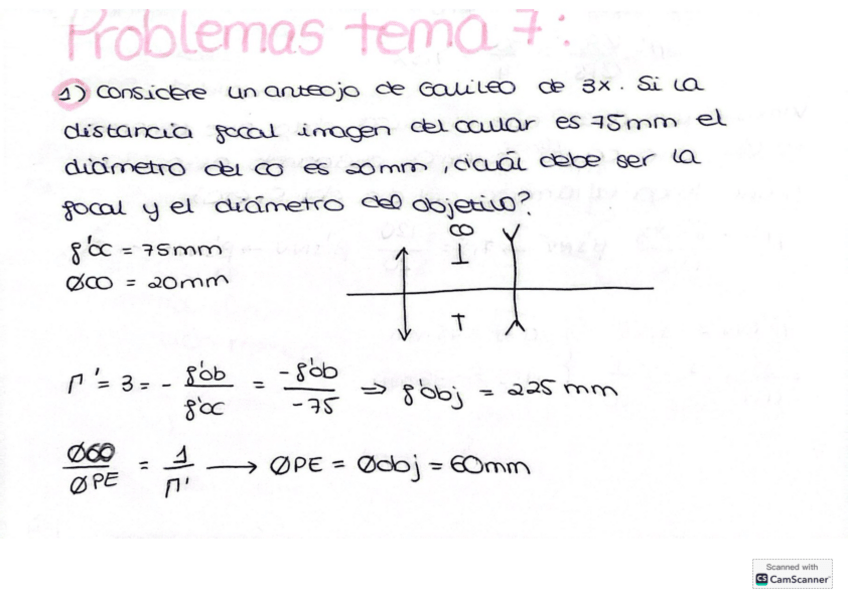 Problemas tema 7:
1) Considere un anteojo de Galileo de 3x. Si la
distancia focal imagen del ocular es 75mm el
diámetro del CO es 20mm, ¿cuál debe ser la
focal y el diámetro del objetivo?
f'oc = 75mm
ØCO = 20mm
CO
Γ' = 3 = - f'ob / f'oc = -f'ob / -75 ⇒ f'obj = 225 mm
ØCO / ØPE = 1 / Γ' → ØPE = Øobj = 60mm
Scanned with
CS CamScanner